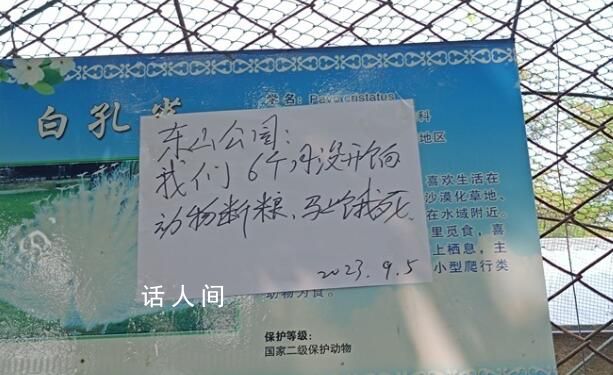 白孔雀
学名：Pavo cristatus
科
地区
东山公园：
我们6个月没开饷
动物断粮，马上饿死.
2023.9.5
喜欢生活在
沙漠化草地、
在水域附近。
里觅食，喜
上栖息，主
小型爬行类
动物为食。
保护等级：
国家二级保护动物
话人间